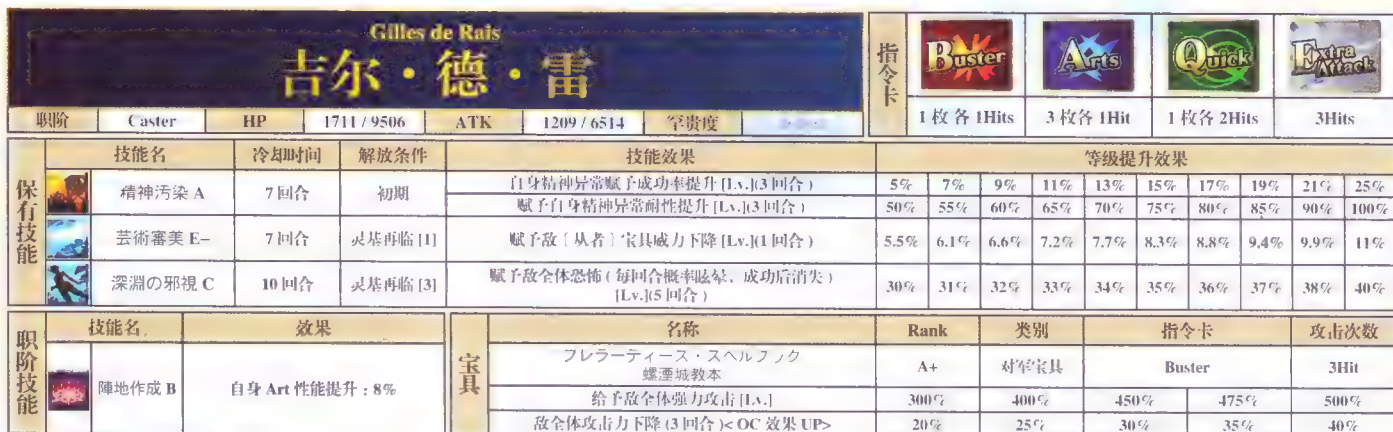 Gilles de Rais
吉尔·德·雷
职阶 Caster HP 1711 / 9506 ATK 1209 / 6514 罕贵度
指令卡
Buster Arts Quick Extra Attack
1 枚 各 1Hits 3 枚各 1Hit 1 枚各 2Hits 3Hits
保有技能
技能名 冷却时间 解放条件 技能效果 等级提升效果
精神汚染 A 7 回合 初期
自身精神异常赋予成功率提升 [Lv.](3 回合 ) 5% 7% 9% 11% 13% 15% 17% 19% 21% 25%
赋予自身精神异常耐性提升 [Lv.](3 回合 ) 50% 55% 60% 65% 70% 75% 80% 85% 90% 100%
芸術審美 E− 7 回合 灵基再临 [1] 赋予敌〔从者〕宝具威力下降 [Lv.](1 回合 ) 5.5% 6.1% 6.6% 7.2% 7.7% 8.3% 8.8% 9.4% 9.9% 11%
深淵の邪視 C 10 回合 灵基再临 [3] 赋予敌全体恐怖 ( 每回合概率眩晕、成功后消失 )
[Lv.](5 回合 ) 30% 31% 32% 33% 34% 35% 36% 37% 38% 40%
职阶技能
技能名 效果
陣地作成 B 自身 Art 性能提升 : 8%
宝具
名称 Rank 类别 指令卡 攻击次数
プレラーティーズ・スペルブック
螺湮城教本 A+ 对军宝具 Buster 3Hit
给予敌全体强力攻击 [Lv.] 300% 400% 450% 475% 500%
敌全体攻击力下降 (3 回合 )< OC 效果 UP> 20% 25% 30% 35% 40%